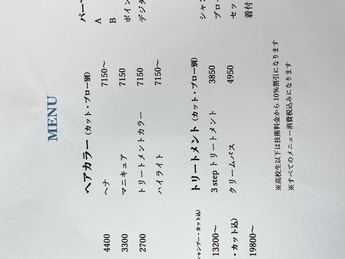 MENU
パーマ
A
B
ポイン
デジタ
ヘアカラー（カット・ブロー別）
ヘナ 7150～
マニキュア 7150
トリートメントカラー 7150
ハイライト 7150～
4400
3300
2700
シャン
ブロー
セッ
着付
トリートメント（カット・ブロー別）
3 step トリートメント 3850
クリームバス 4950
シャンプー・カット込）
13200～
・カット込）
19800～
※高校生以下は技術料金から10%割引になります
※すべてのメニュー消費税込みになります